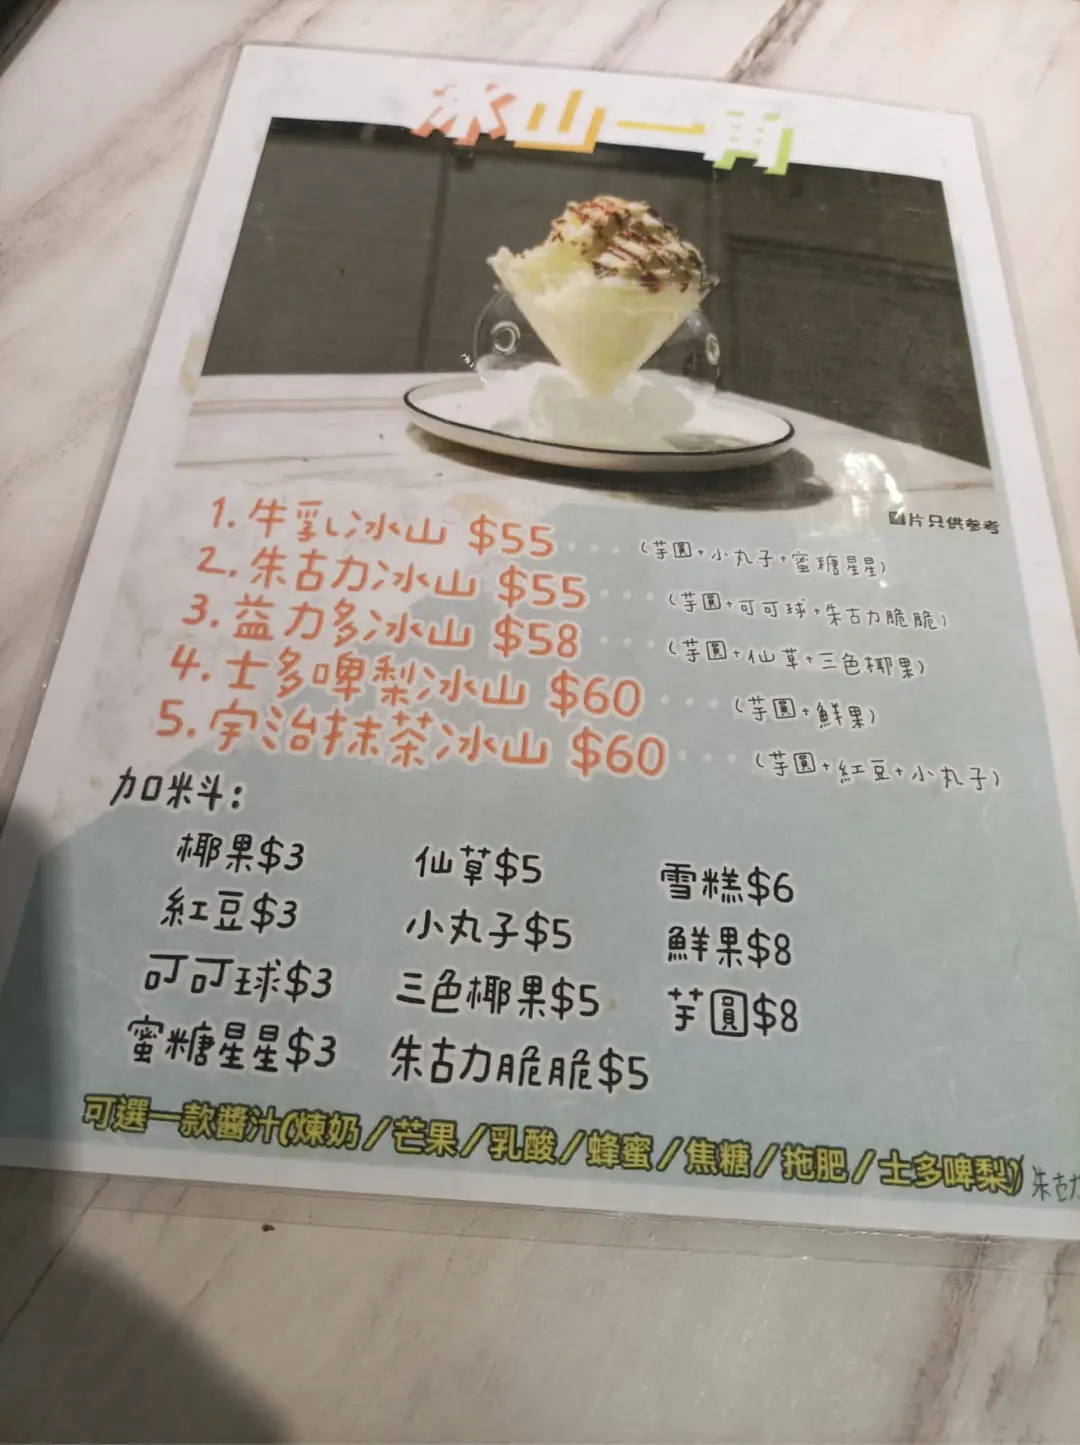 冰山一角
圖片只供參考
1. 牛乳冰山 $55 ···· (芋圓+小丸子+蜜糖星星)
2. 朱古力冰山 $55 ···· (芋圓+可可球+朱古力脆脆)
3. 益力多冰山 $58 ···· (芋圓+仙草+三色椰果)
4. 士多啤梨冰山 $60 ···· (芋圓+鮮果)
5. 宇治抹茶冰山 $60 ···· (芋圓+紅豆+小丸子)
加料:
椰果$3 仙草$5 雪糕$6
紅豆$3 小丸子$5 鮮果$8
可可球$3 三色椰果$5 芋圓$8
蜜糖星星$3 朱古力脆脆$5
可選一款醬汁(煉奶/芒果/乳酸/蜂蜜/焦糖/拖肥/士多啤梨) 朱古力